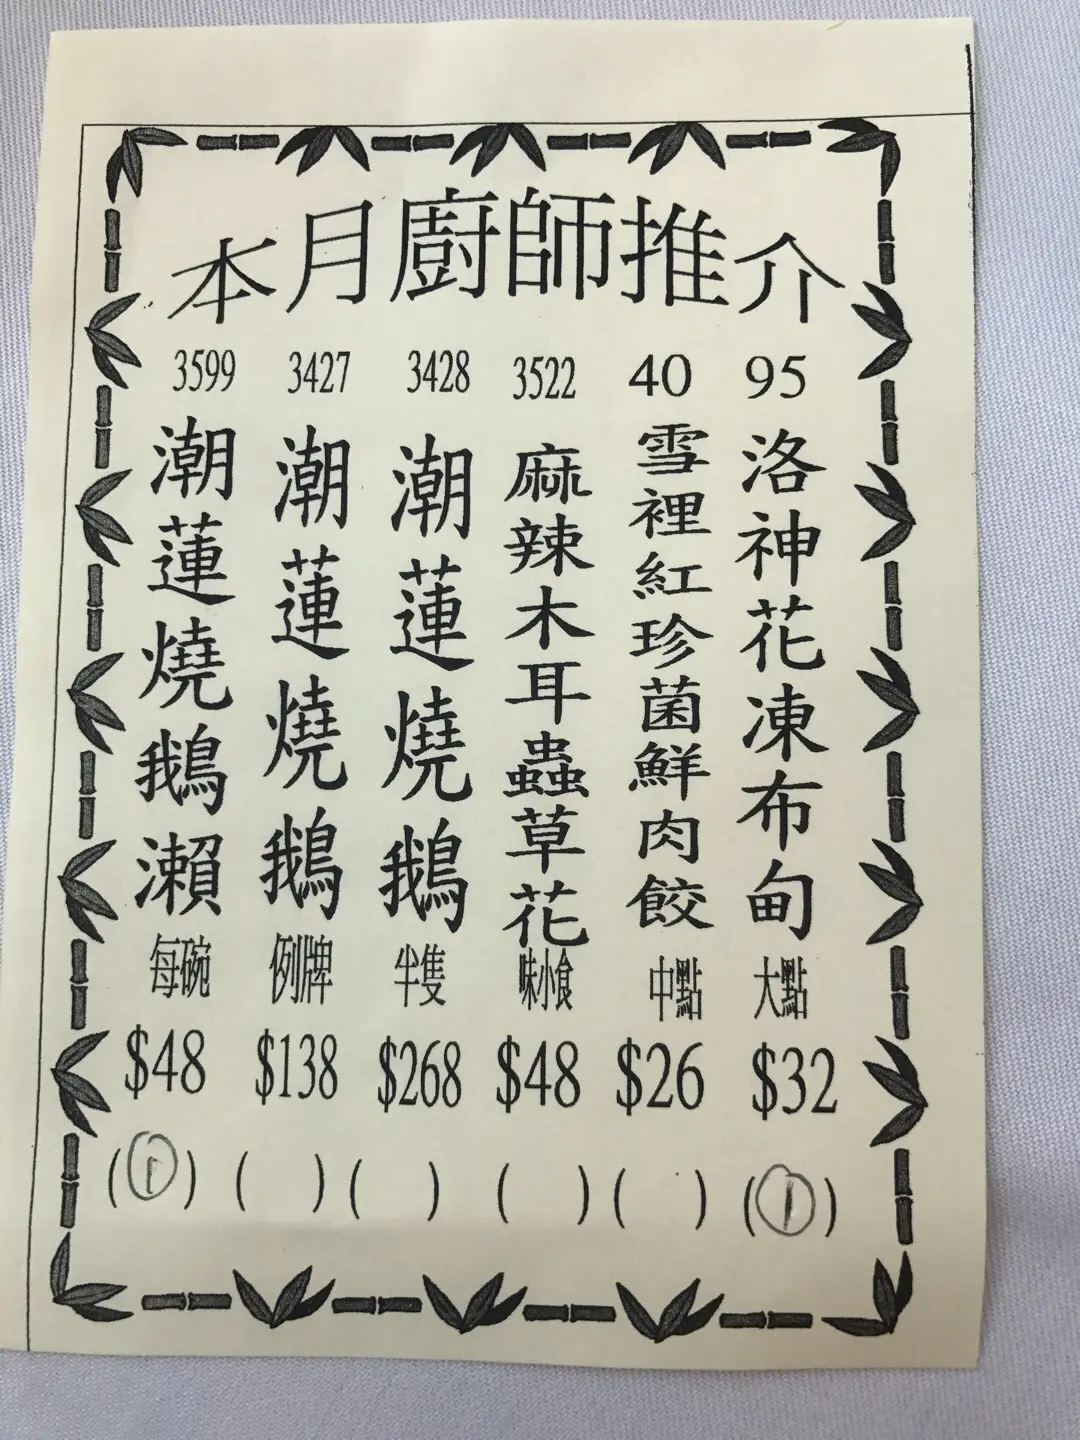 本月廚師推介
95
洛神花凍布甸
大點
$32
(1)
40
雪裡紅珍菌鮮肉餃
中點
$26
( )
3522
麻辣木耳蟲草花
味小食
$48
( )
3428
潮蓮燒鵝
半隻
$268
( )
3427
潮蓮燒鵝
例牌
$138
( )
3599
潮蓮燒鵝瀨
每碗
$48
(1)